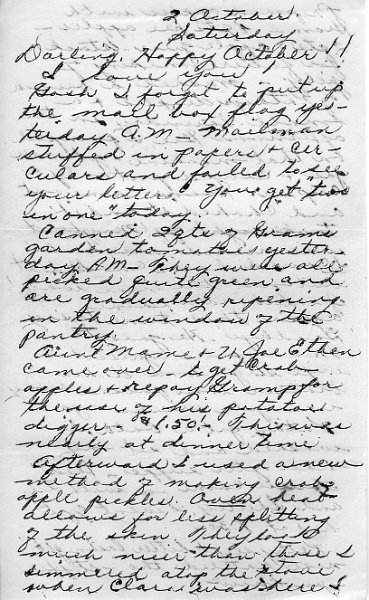 2 October
Saturday
Darling, Happy October!!
I love you!
Gosh I forgot to put up
the mail box flag yes-
terday A.M. - Mailman
stuffed in papers & cir-
culars and failed to see
your letter. You get "two
in one" today.
Canned 3 qts of Gram's
garden tomatoes yester-
day P.M. They were all
picked quite green and
are gradually ripening
in the window of the
pantry.
Aunt Mame & U. Joe Ethen
came over to get crab
apples & repay Gramp for
the use of his potatoe
digger - $1.50. - This was
nearly at dinner time
Afterward I used a new
method of making crab-
apple pickles. Oven heat
allows for less splitting
of the skin. They look
much nicer than those I
simmered atop the stove
when Clara was here I